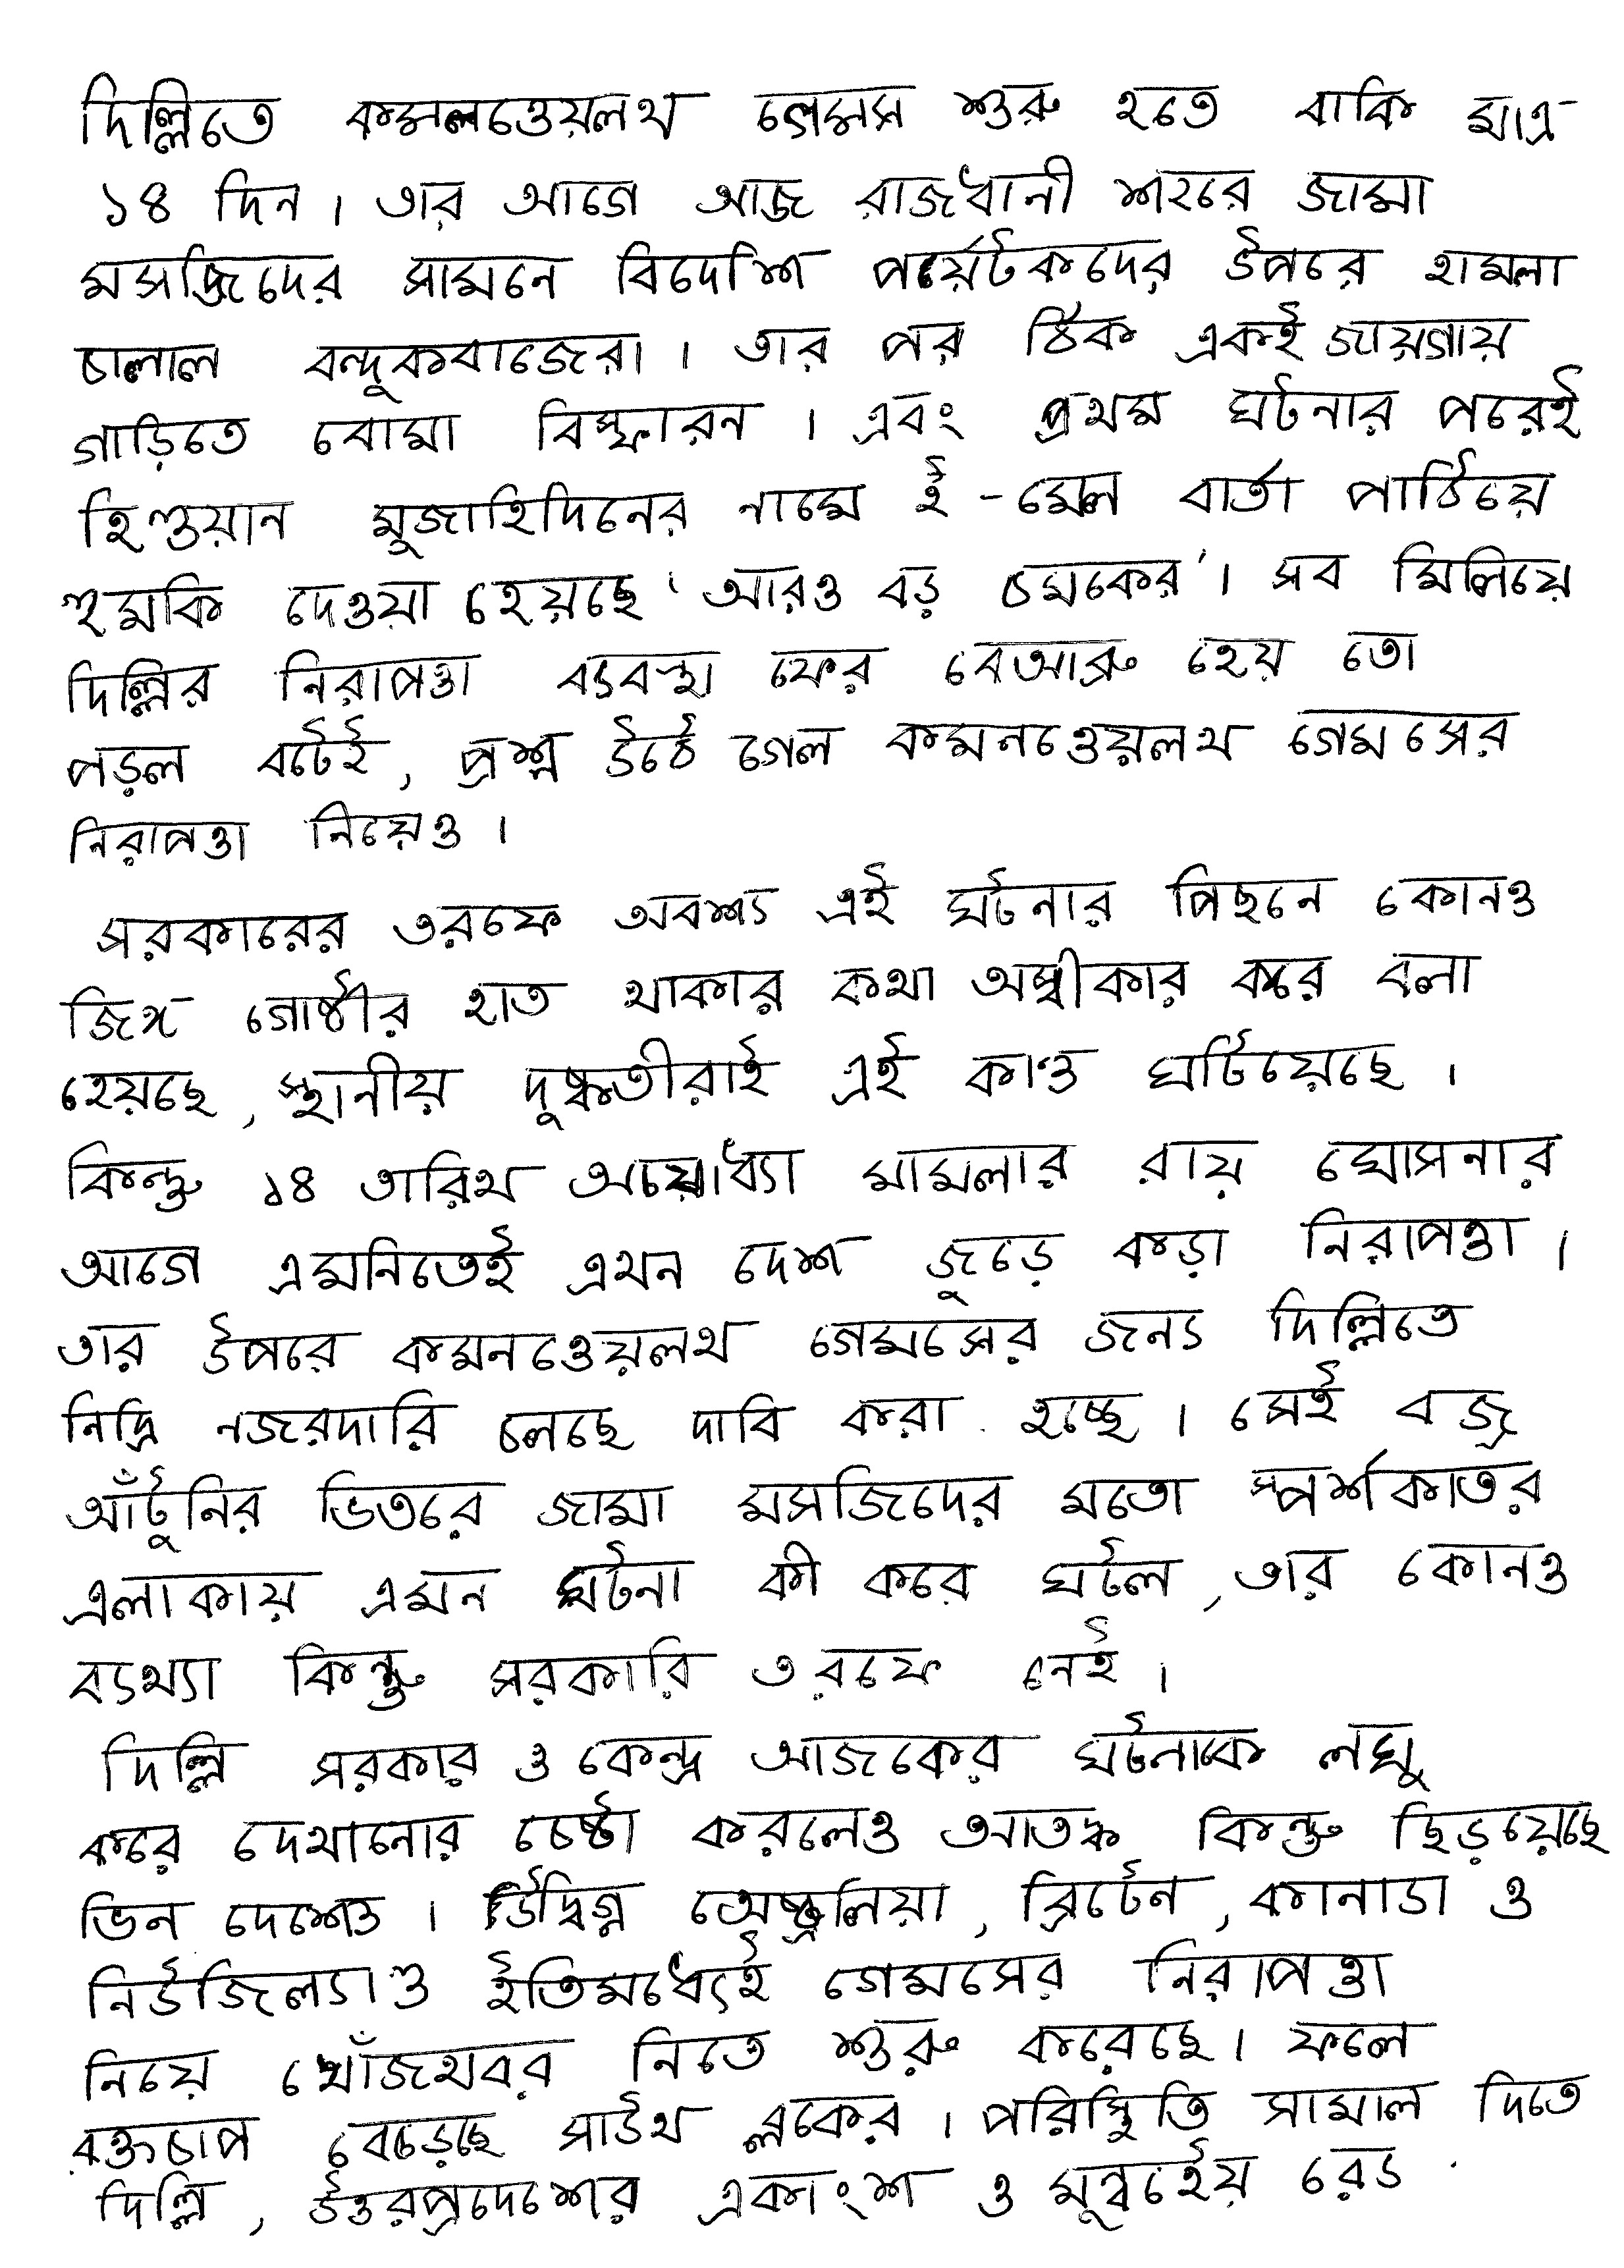 দিল্লিতে কমনওেয়লথ গেমস শুরু হতে বাকি মাত্র
১৪ দিন। তার আগে আজ রাজধানী শহরে জামা
মসজিদের সামনে বিদেশি পর্যেটকদের উপরে হামলা
চালাল বন্দুকবাজেরা। তার পর ঠিক একই জায়গায়
গাড়িতে বোমা বিস্ফারন। এবং প্রথম ঘটনার পরেই
হিণ্ডয়ান মুজাহিদিনের নামে ই-মেল বার্তা পাঠিয়ে
হুমকি দেওয়া হেয়ছে 'আরও বড় চমকের'। সব মিলিয়ে
দিল্লির নিরাপত্তা ব্যবস্থা ফের বেআব্রু হেয় তো
পড়ল বটেই, প্রশ্ন উঠে গেল কমনওেয়লথ গেমসের
নিরাপত্তা নিয়েও।
সরকারের তরফে অবশ্য এই ঘটনার পিছনে কোনও
জিঙ্গ গোষ্ঠীর হাত থাকার কথা অস্বীকার করে বলা
হেয়ছে, স্থানীয় দুষ্কৃতীরাই এই কাণ্ড ঘটিয়েছে।
কিন্তু ১৪ তারিখ অযোধ্যা মামলার রায় ঘোসনার
আগে এমনিতেই এখন দেশ জুড়ে কড়া নিরাপত্তা।
তার উপরে কমনওেয়লথ গেমসের জন্য দিল্লিতে
নিদ্রি নজরদারি চলেছে দাবি করা হচ্ছে। সেই বজ্র
আঁটুনির ভিতরে জামা মসজিদের মতো স্পর্শকাতর
এলাকায় এমন ঘটনা কী করে ঘটল, তার কোনও
ব্যখ্যা কিন্তু সরকারি তরফে নেই।
দিল্লি সরকার ও কেন্দ্র আজকের ঘটনাকে লঘু
করে দেখানোর চেষ্টা করলেও আতঙ্ক কিন্তু ছিড়য়েছে
ভিন দেশেও। উিদ্বগ্ন অেষ্ট্রলিয়া, ব্রিটেন, কানাডা ও
নিউজিল্যাণ্ড ইতিমধ্যেই গেমসের নিরাপত্তা
নিয়ে খোঁজখবর নিতে শুরু করেছে। ফলে
রক্তচাপ বেড়েছে সাউথ ব্লকের। পরিস্থিতি সামাল দিতে
দিল্লি, উত্তরপ্রদেশের একাংশ ও মুম্বইেয় রেড